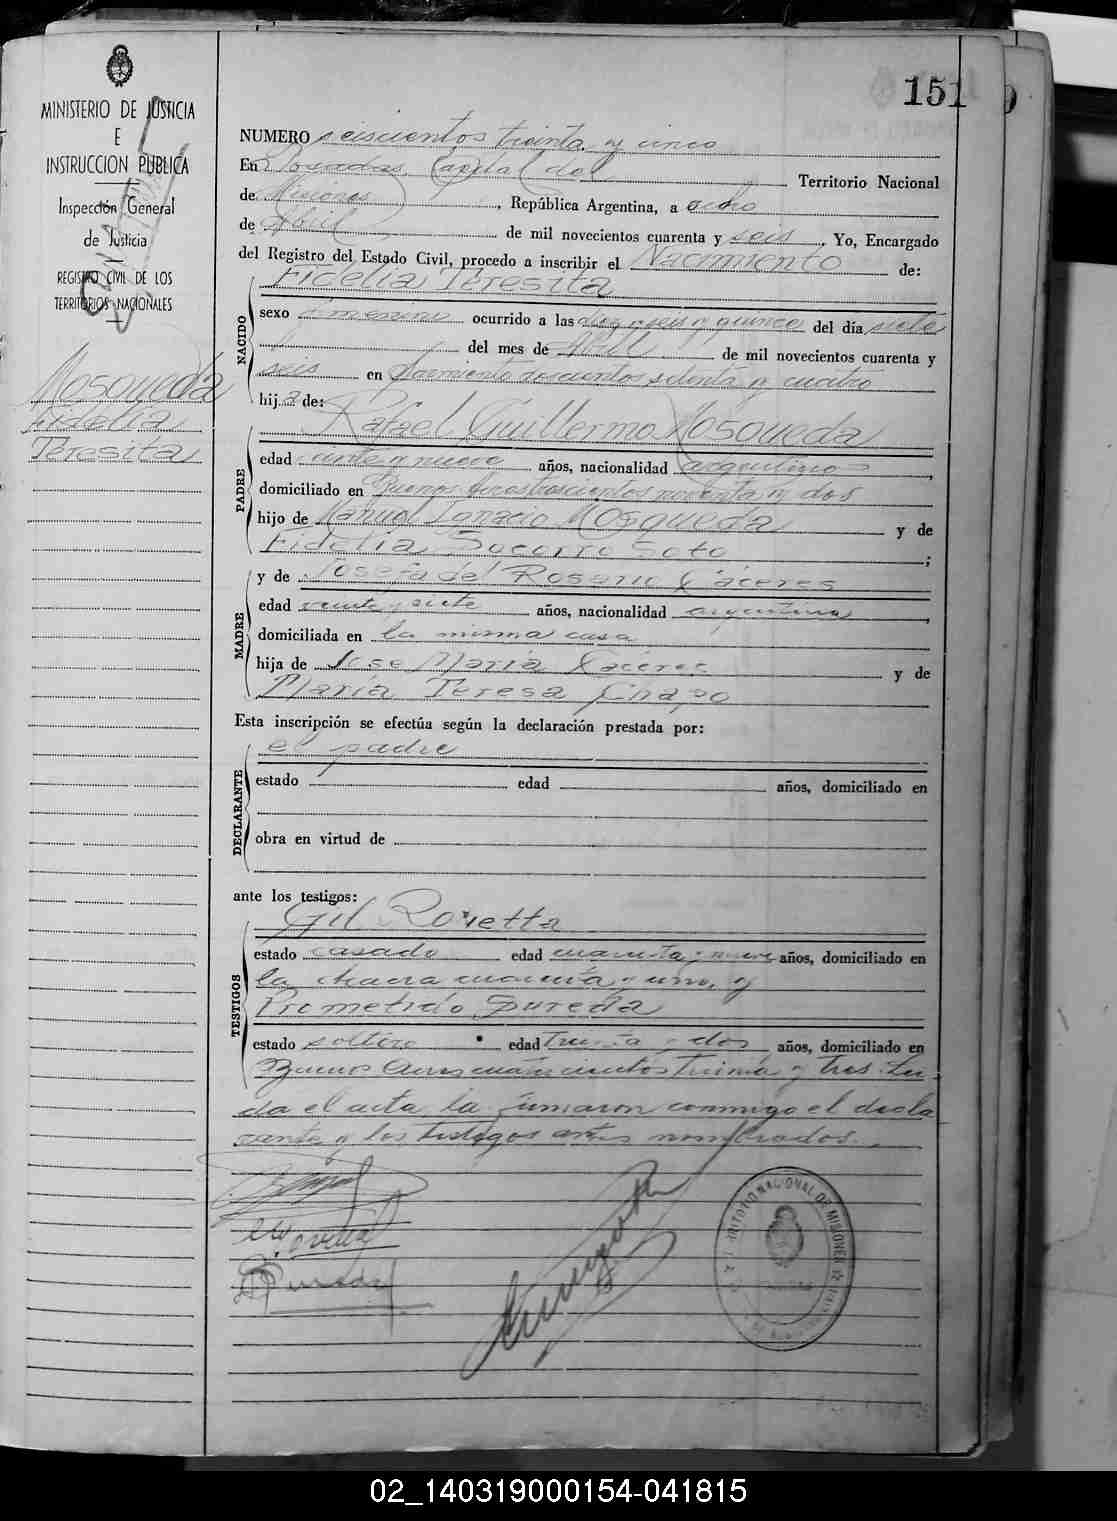 151
MINISTERIO DE JUSTICIA
E
INSTRUCCION PUBLICA
Inspección General
de Justicia
REGISTRO CIVIL DE LOS
TERRITORIOS NACIONALES
Mosqueda
Fidelia
Teresita
NUMERO seiscientos treinta y cinco
En Posadas Capital del Territorio Nacional
de Misiones, República Argentina, a ocho
de Abril de mil novecientos cuarenta y seis. Yo, Encargado
del Registro del Estado Civil, procedo a inscribir el Nacimiento de:
NACIDO
Fidelia Teresita
sexo femenino ocurrido a las diez y seis y quince del día siete
del mes de Abril de mil novecientos cuarenta y
seis en Sarmiento doscientos setenta y cuatro
hija de:
Rafael Guillermo Mosqueda
PADRE
edad veinte y nueve años, nacionalidad argentino
domiciliado en Buenos Aires trescientos noventa y dos
hijo de Manuel Ignacio Mosqueda y de
Fidelia Socorro Soto ;
y de Josefa del Rosario Cáceres
MADRE
edad veinte y siete años, nacionalidad argentina,
domiciliada en la misma casa
hija de José María Cáceres y de
María Teresa Chapo
Esta inscripción se efectúa según la declaración prestada por:
DECLARANTE
el padre
estado edad años, domiciliado en
obra en virtud de
ante los testigos:
TESTIGOS
Gil
estado casado edad cuarenta y nueve años, domiciliado en
la chacra cuarenta y uno, y
estado soltero edad treinta y dos años, domiciliado en
Buenos Aires cuatrocientos treinta y tres. Leí
da el acta, la firmaron conmigo el decla
rante y los testigos antes nombrados.
TERRITORIO NACIONAL DE MISIONES
02_140319000154-041815